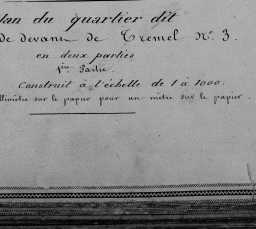 plan du quartier dit
de devant de Tremel N.° 3.
en deux parties
1ère Partie.
Construit à l'échelle de 1 à 1000.
millimètre sur le papier pour un mètre sur le papier.